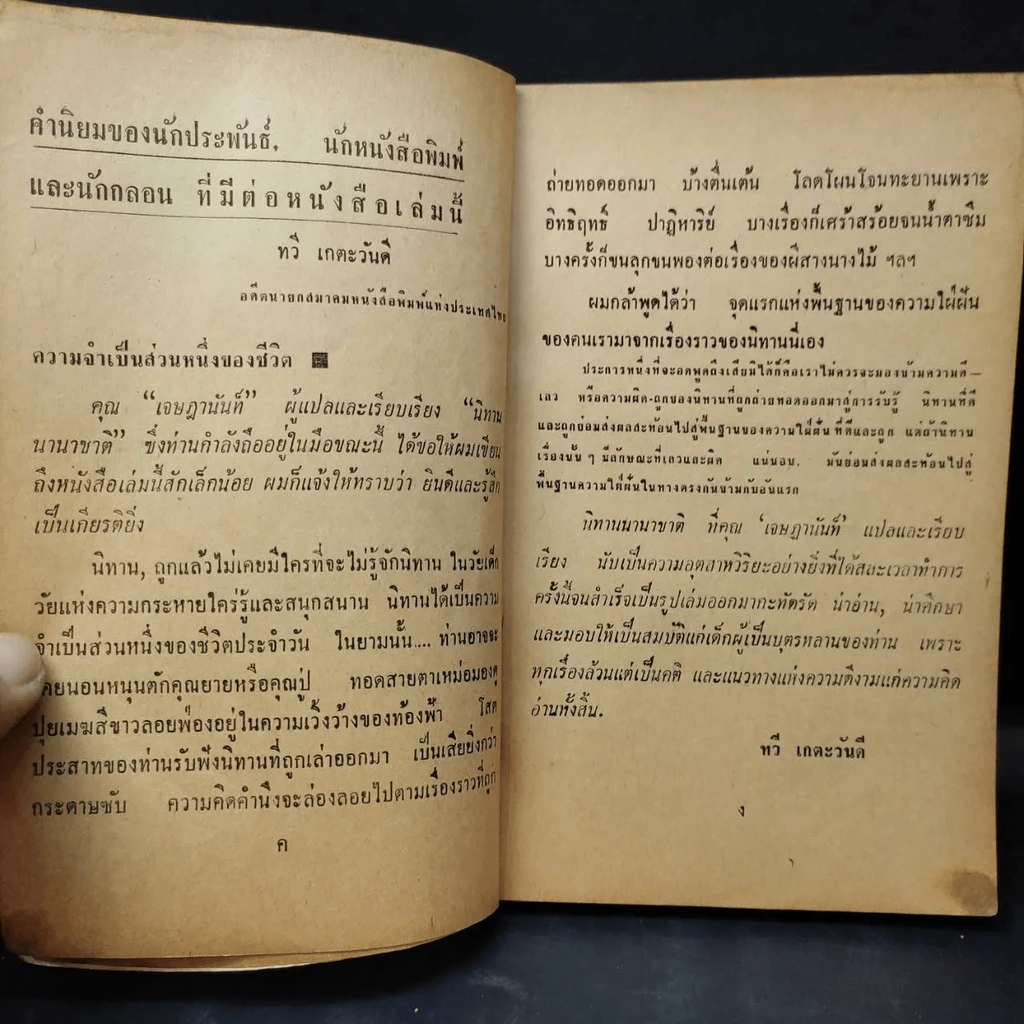 คำนิยมของนักประพันธ์. นักหนังสือพิมพ์
และนักกลอน ที่มีต่อหนังสือเล่มนี้
ทวี เกตะวันดี
อดีตนายกสมาคมหนังสือพิมพ์แห่งประเทศไทย
ความจำเป็นส่วนหนึ่งของชีวิต
คุณ “เจษฎานันท์” ผู้แปลและเรียบเรียง “นิทาน
นานาชาติ” ซึ่งท่านกำลังถืออยู่ในมือขณะนี้ ได้ขอให้ผมเขียน
ถึงหนังสือเล่มนี้สักเล็กน้อย ผมก็แจ้งให้ทราบว่า ยินดีและรู้สึก
เป็นเกียรติยิ่ง
นิทาน, ถูกแล้วไม่เคยมีใครที่จะไม่รู้จักนิทาน ในวัยเด็ก
วัยแห่งความกระหายใคร่รู้และสนุกสนาน นิทานได้เป็นความ
จำเป็นส่วนหนึ่งของชีวิตประจำวัน ในยามนั้น.... ท่านอาจจะ
เคยนอนหนุนตักคุณยายหรือคุณปู่ ทอดสายตาเหม่อมองดู
ปุยเมฆสีขาวลอยฟ่องอยู่ในความเวิ้งว้างของท้องฟ้า โสต
ประสาทของท่านรับฟังนิทานที่ถูกเล่าออกมา เป็นเสียยิ่งกว่า
กระดาษซับ ความคิดคำนึงจะล่องลอยไปตามเรื่องราวที่ถูก
ค
ถ่ายทอดออกมา บ้างตื่นเต้น โลดโผนโจนทะยานเพราะ
อิทธิฤทธิ์ ปาฏิหาริย์ บางเรื่องก็เศร้าสร้อยจนน้ำตาซึม
บางครั้งก็ขนลุกขนพองต่อเรื่องของผีสางนางไม้ ฯลฯ
ผมกล้าพูดได้ว่า จุดแรกแห่งพื้นฐานของความใฝ่ฝัน
ของคนเรามาจากเรื่องราวของนิทานนี่เอง
ประการหนึ่งที่จะอดพูดถึงเสียมิได้ก็คือเราไม่ควรจะมองข้ามความดี–
เลว หรือความผิด-ถูกของนิทานที่ถูกถ่ายทอดออกมาสู่การรับรู้ นิทานที่ดี
และถูกย่อมส่งผลสะท้อนไปสู่พื้นฐานของความใฝ่ฝัน ที่ดีและถูก แต่ถ้านิทาน
เรื่องนั้น ๆ มีลักษณะที่เลวและผิด แน่นอน. มันย่อมส่งผลสะท้อนไปสู่
พื้นฐานความใฝ่ฝันในทางตรงกันข้ามกับอันแรก
นิทานนานาชาติ ที่คุณ ‘เจษฎานันท์’ แปลและเรียบ
เรียง นับเป็นความอุตสาหวิริยะอย่างยิ่งที่ได้สละเวลาทำการ
ครั้งนี้จนสำเร็จเป็นรูปเล่มออกมากะทัดรัด น่าอ่าน, น่าศึกษา
และมอบให้เป็นสมบัติแก่เด็กผู้เป็นบุตรหลานของท่าน เพราะ
ทุกเรื่องล้วนแต่เป็นคติ และแนวทางแห่งความดีงามแก่ความคิด
อ่านทั้งสิ้น.
ทวี เกตะวันดี
ง